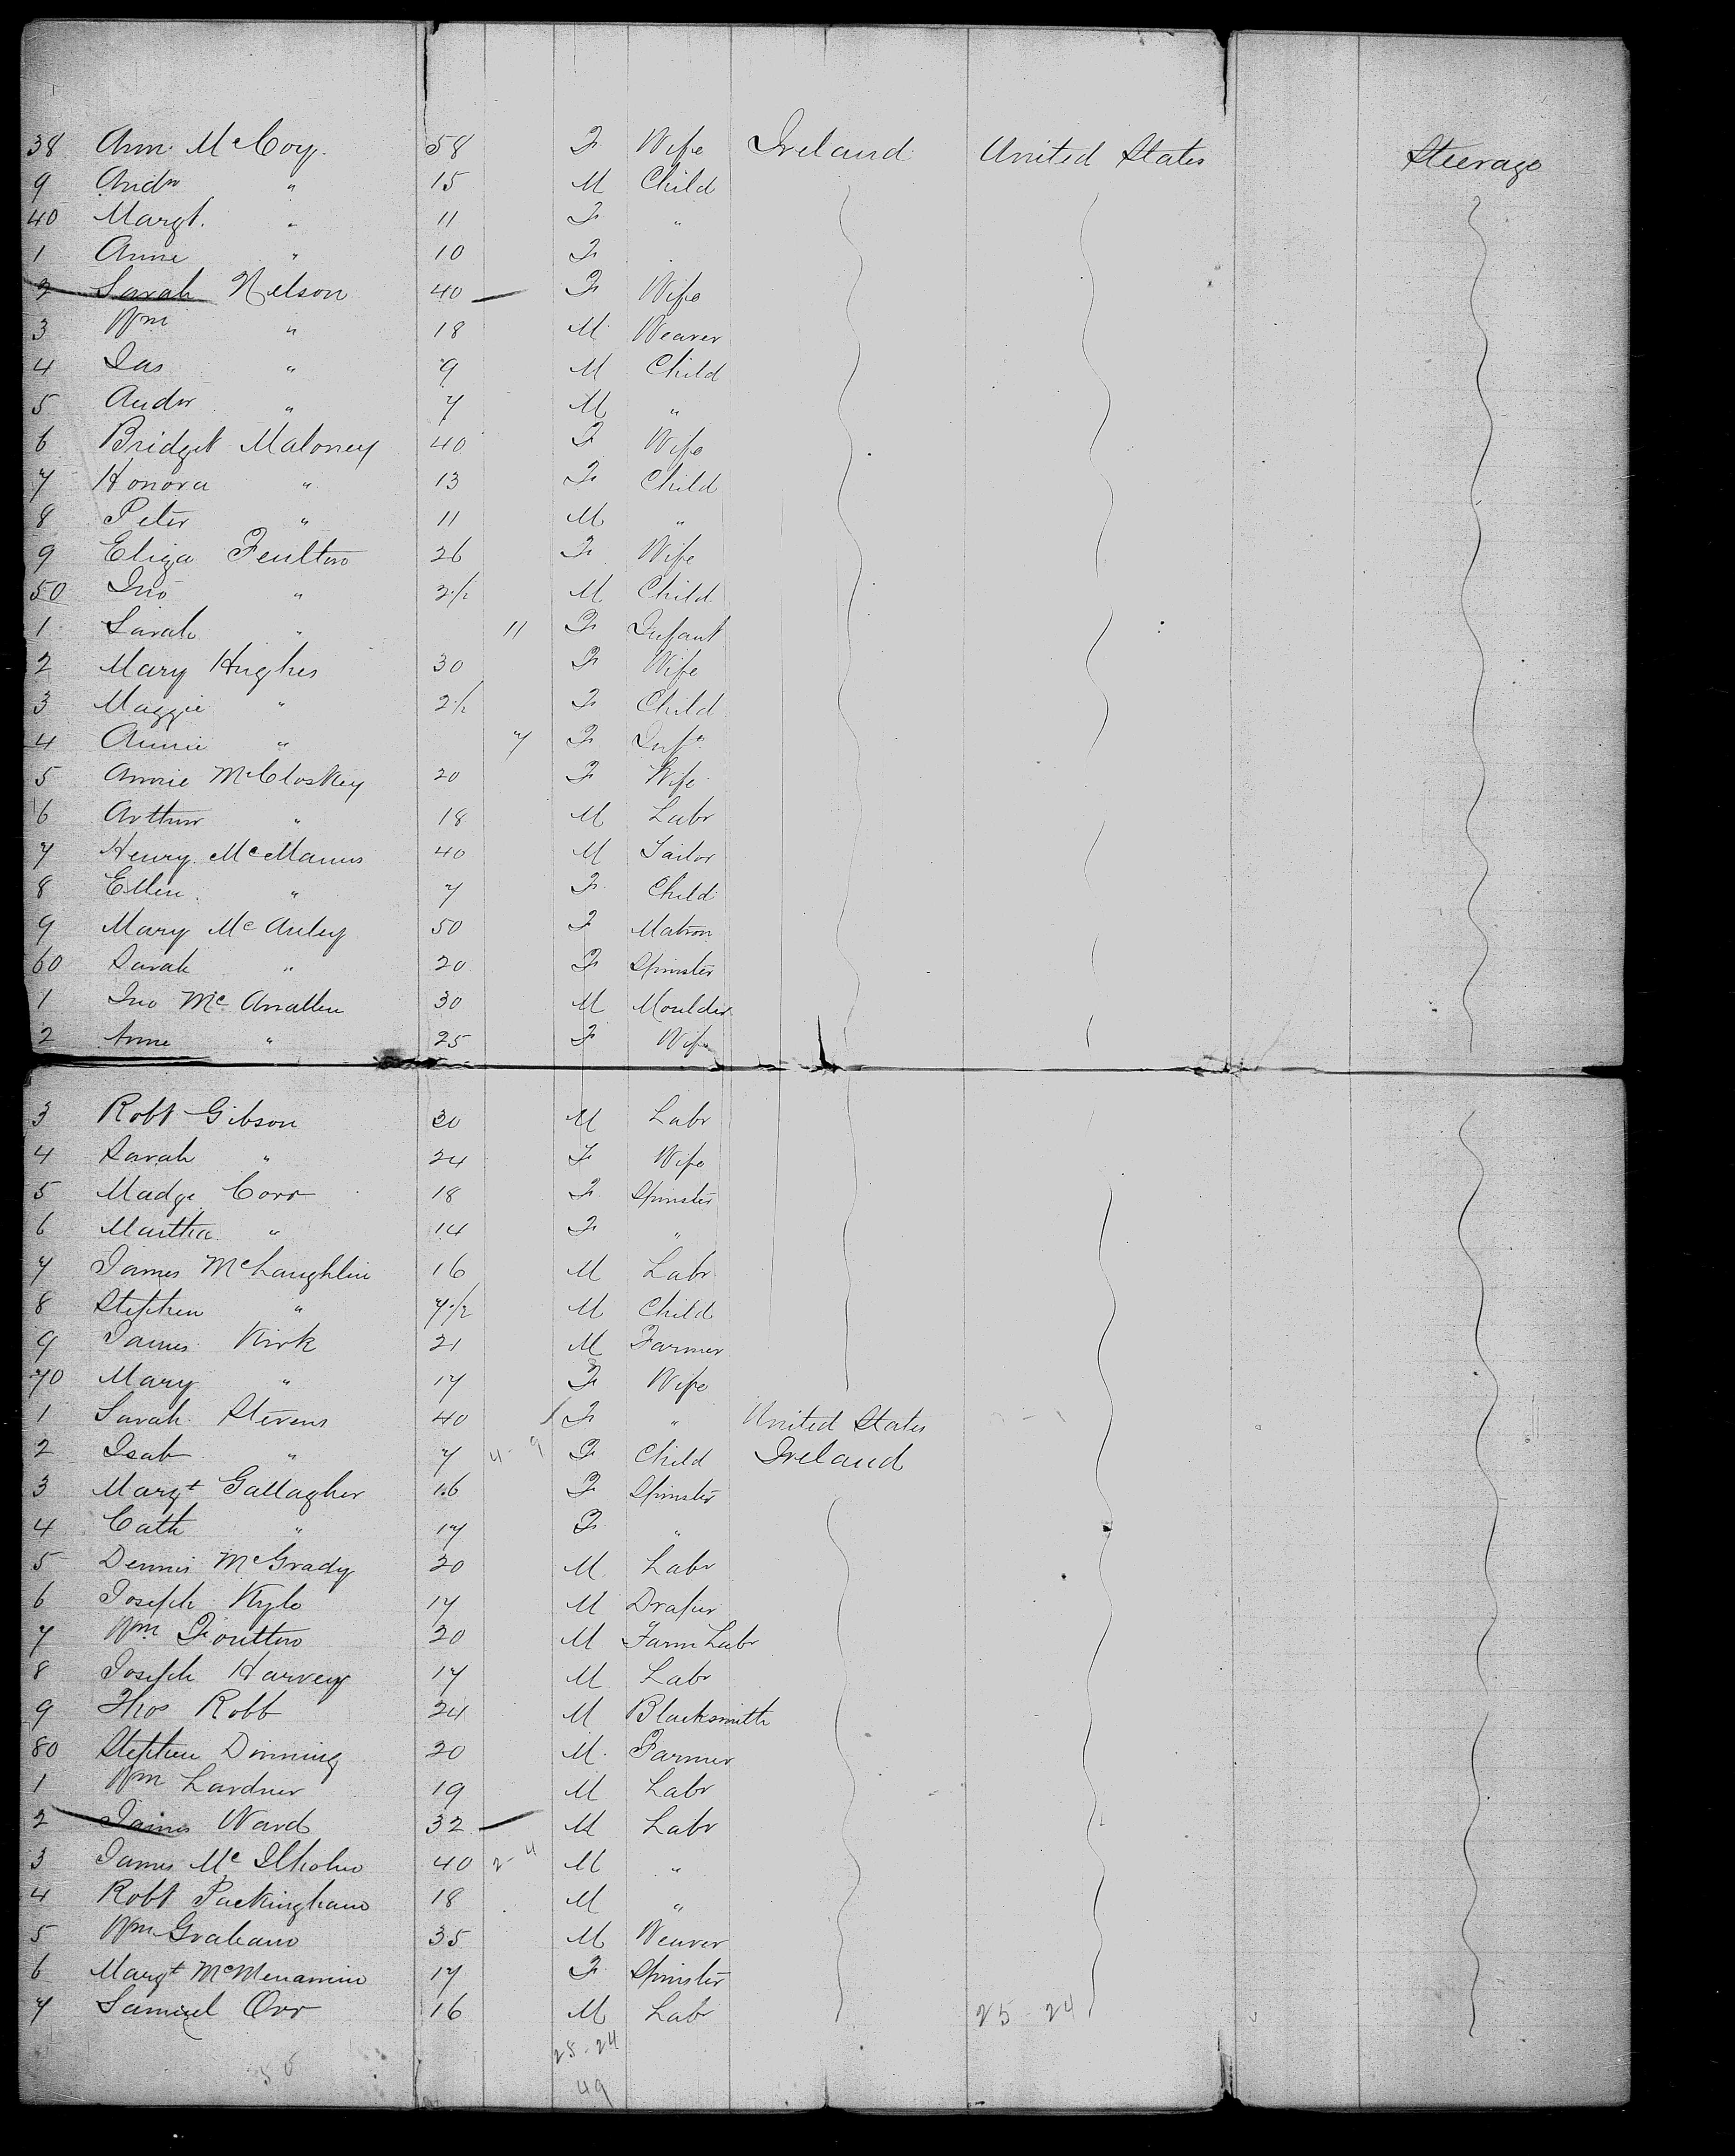 38 Ann McCoy 58 F Wife Ireland United States Steerage
9 Andw " 15 M Child
40 Margt. " 11 F "
1 Anne " 10 F "
2 Sarah Nelson 40 F Wife
3 Wm " 18 M Weaver
4 Jas " 9 M Child
5 Andw " 7 M "
6 Bridget Maloney 40 F Wife
7 Honora " 13 F Child
8 Peter " 11 M "
9 Eliza Feulton 26 F Wife
50 Jno " 2 1/2 M Child
1 Sarah " 11 F Infant
2 Mary Hughes 30 F Wife
3 Maggie " 2 1/2 F Child
4 Annie " 7 F Inft
5 Annie McCloskey 20 F Wife
6 Arthur " 18 M Labr
7 Henry McManus 40 M Tailor
8 Ellen " 7 F Child
9 Mary McAuley 50 F Matron
60 Sarah " 20 F Spinster
1 Jno McAnallen 30 M Moulder
2 Anne " 25 F Wife
3 Robt Gibson 30 M Labr
4 Sarah " 24 F Wife
5 Madge Corr 18 F Spinster
6 Martha " 14 F "
7 James McLaughlin 16 M Labr
8 Stephen " 7 1/2 M Child
9 James Kirk 21 M Farmer
70 Mary " 17 F Wife
1 Sarah Stevens 40 F " United States
2 Isab " 7 F Child Ireland
3 Margt Gallagher 16 F Spinster
4 Cath " 17 F "
5 Dennis McGrady 20 M Labr
6 Joseph Kyle 17 M Draper
7 Wm Foulton 20 M Farm Labr
8 Joseph Harvey 17 M Labr
9 Thos Robb 24 M Blacksmith
80 Stephen Dinning 20 M Farmer
1 Wm Lardner 19 M Labr
2 James Ward 32 M Labr
3 James Mc 40 M "
4 Robt Packingham 18 M "
5 Wm Graham 35 M Weaver
6 Margt McMenamin 17 F Spinster
7 Samuel Orr 16 M Labr 25-24
25-24
49